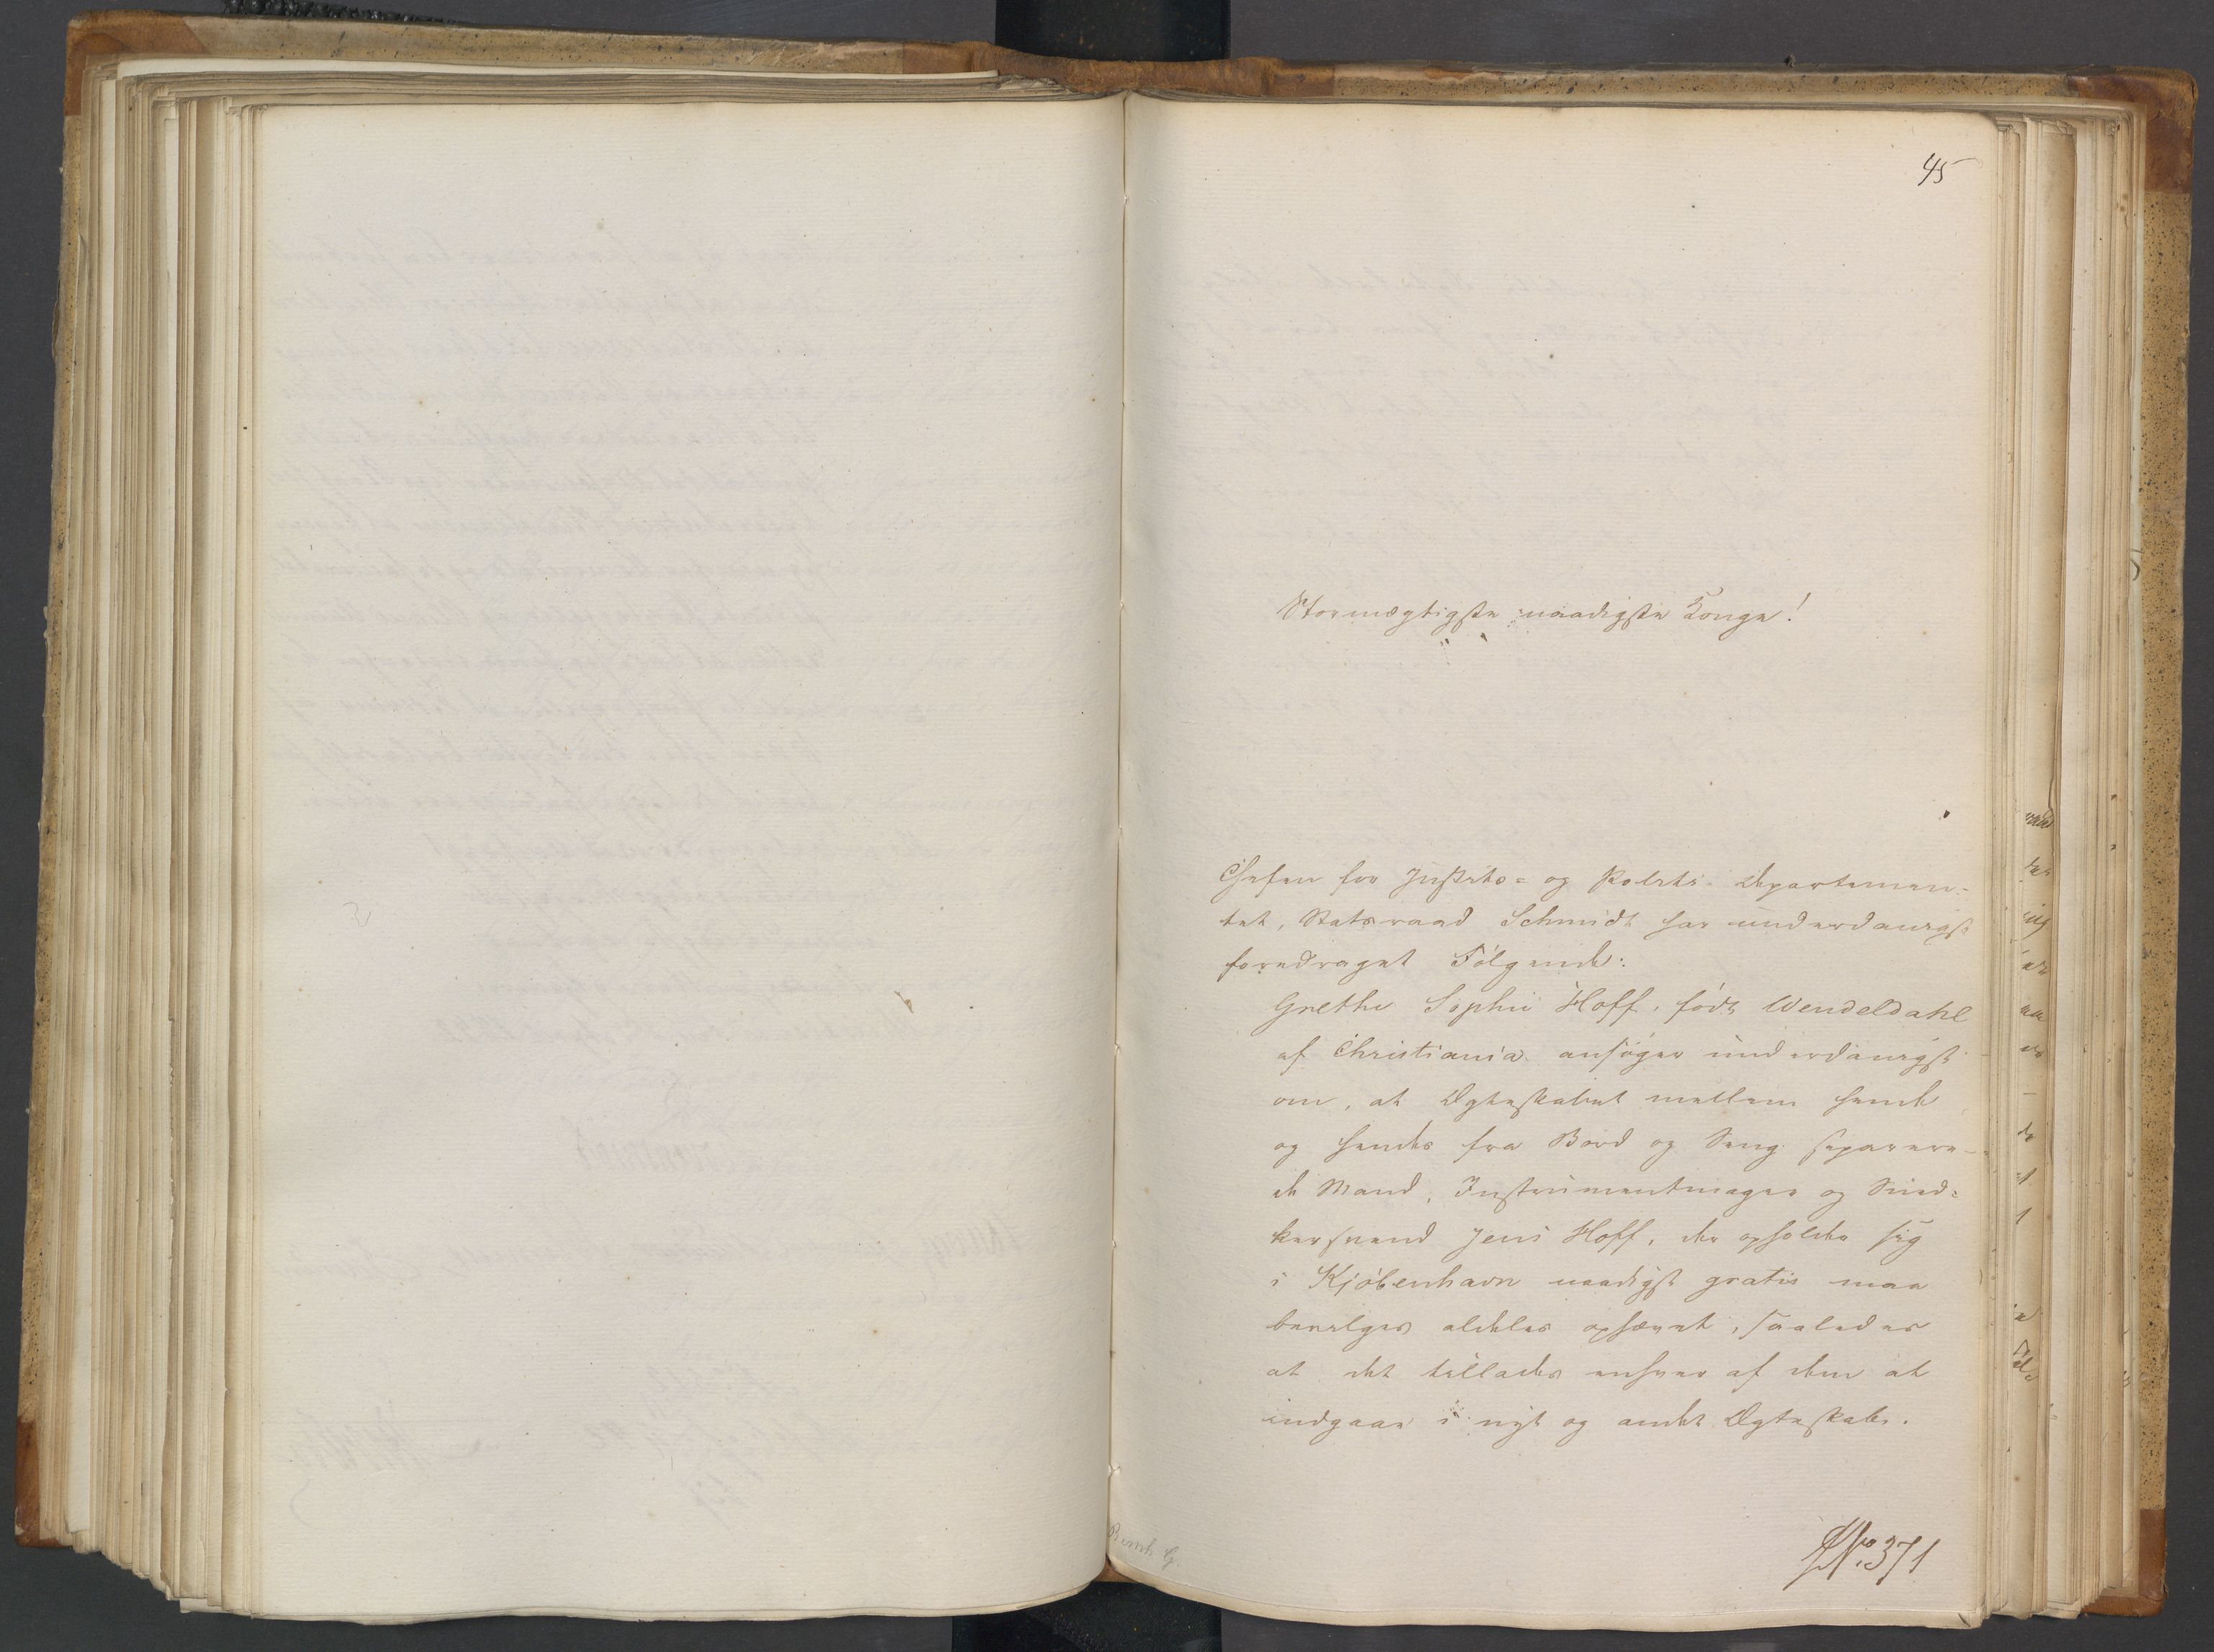 45
Stormægtigste naadigste Konge!
Chefen for Justits- og Politi-Departemen-
tet, Statsraad Schmidt har underdanigst
foredraget Følgende:
Grethe Sophie Hoff, født Wendeldahl
af Christiania ansøger underdanigst
om, at Ægteskabet mellem hende
og hendes fra Bord og Seng separere-
de Mand, Instrumentmager og Sned-
kersvend Jens Hoff, der opholder sig
i Kjøbenhavn naadigst gratis maa
bevilges aldeles ophævet, saaledes
at det tillades enhver af dem at
indgaae i nyt og andet Ægteskab.
JNo. 371